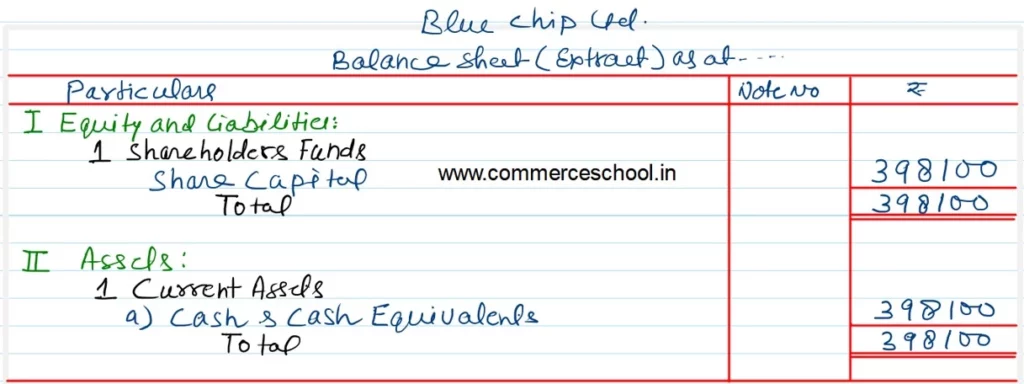 Blue chip Ltd.
Balance sheet (Extract) as at-----
Particulars Note No ₹
I Equity and Liabilities:
1 Shareholders Funds
Share Capital www.commerceschool.in 398100
Total 398100
II Assets:
1 Current Assets
a) Cash & Cash Equivalents 398100
Total 398100